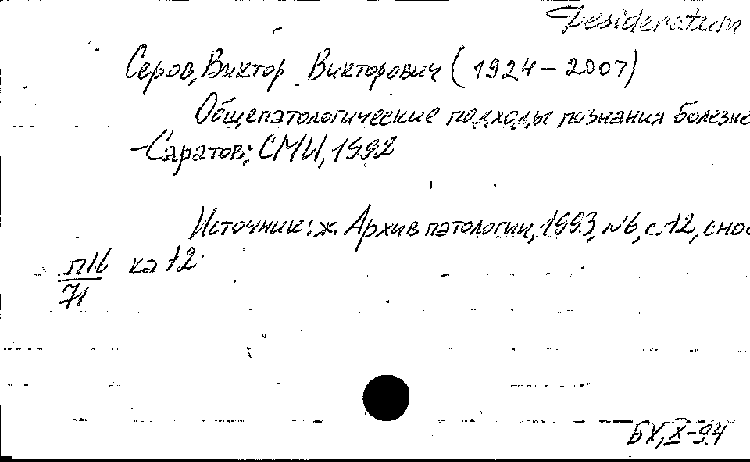 Desideratum
Серов, Виктор Викторович (1924 – 2007)
Общепатологические подходы познания болезне
- Саратов: СМИ, 1992
Источник: ж. Архив патологии, 1993, №6, с. 12, снос
п16 ка 12
71
БХ, X-94